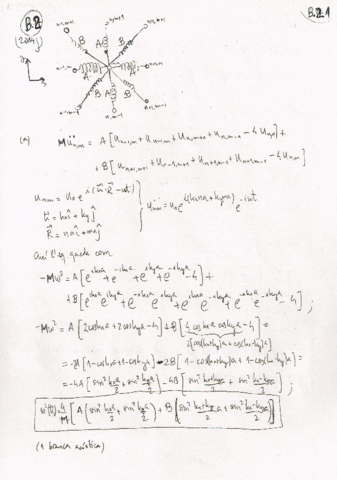 B.2
B.2.1
(2014j)
n,m+1
B
A
B
A
A
B
A
B
n,m-1
(a) M ü_{n,m} = A [u_{n+1,m} + u_{n-1,m} + u_{n,m+1} + u_{n,m-1} - 4 u_{n,m}] +
+ B [u_{n+1,m+1} + u_{n-1,m+1} + u_{n+1,m-1} + u_{n-1,m-1} - 4 u_{n,m}]
u_{n,m} = u_0 e^{i(\vec{k}·\vec{R} - ωt)}
\vec{k} = k_x î + k_y ĵ
\vec{R} = na î + ma ĵ
u_{n,m} = u_0 e^{i(k_x na + k_y ma)} e^{-iωt}
l'eq. queda com
-Mω² = A [e^{ik_x a} + e^{-ik_x a} + e^{ik_y a} + e^{-ik_y a} - 4] +
+ B [e^{ik_x a} e^{ik_y a} + e^{-ik_x a} e^{ik_y a} + e^{ik_x a} e^{-ik_y a} + e^{-ik_x a} e^{-ik_y a} - 4] ;
-Mω² = A [2cos k_x a + 2cos k_y a - 4] + B [4 cos k_x a cos k_y a - 4] =
2[cos(k_x+k_y)a + cos(k_x-k_y)a]
= -2A [1 - cos k_x a + 1 - cos k_y a] - 2B [1 - cos(k_x+k_y)a + 1 - cos(k_x-k_y)a] =
= -4A [sin² k_x a/2 + sin² k_y a/2] - 4B [sin² (k_x+k_y)a/2 + sin² (k_x-k_y)a/2] ;
ω²(k) = 4/M [A (sin² k_x a/2 + sin² k_y a/2) + B (sin² (k_x+k_y)/2 a + sin² (k_x-k_y)a/2)]
(1 branca acústica)